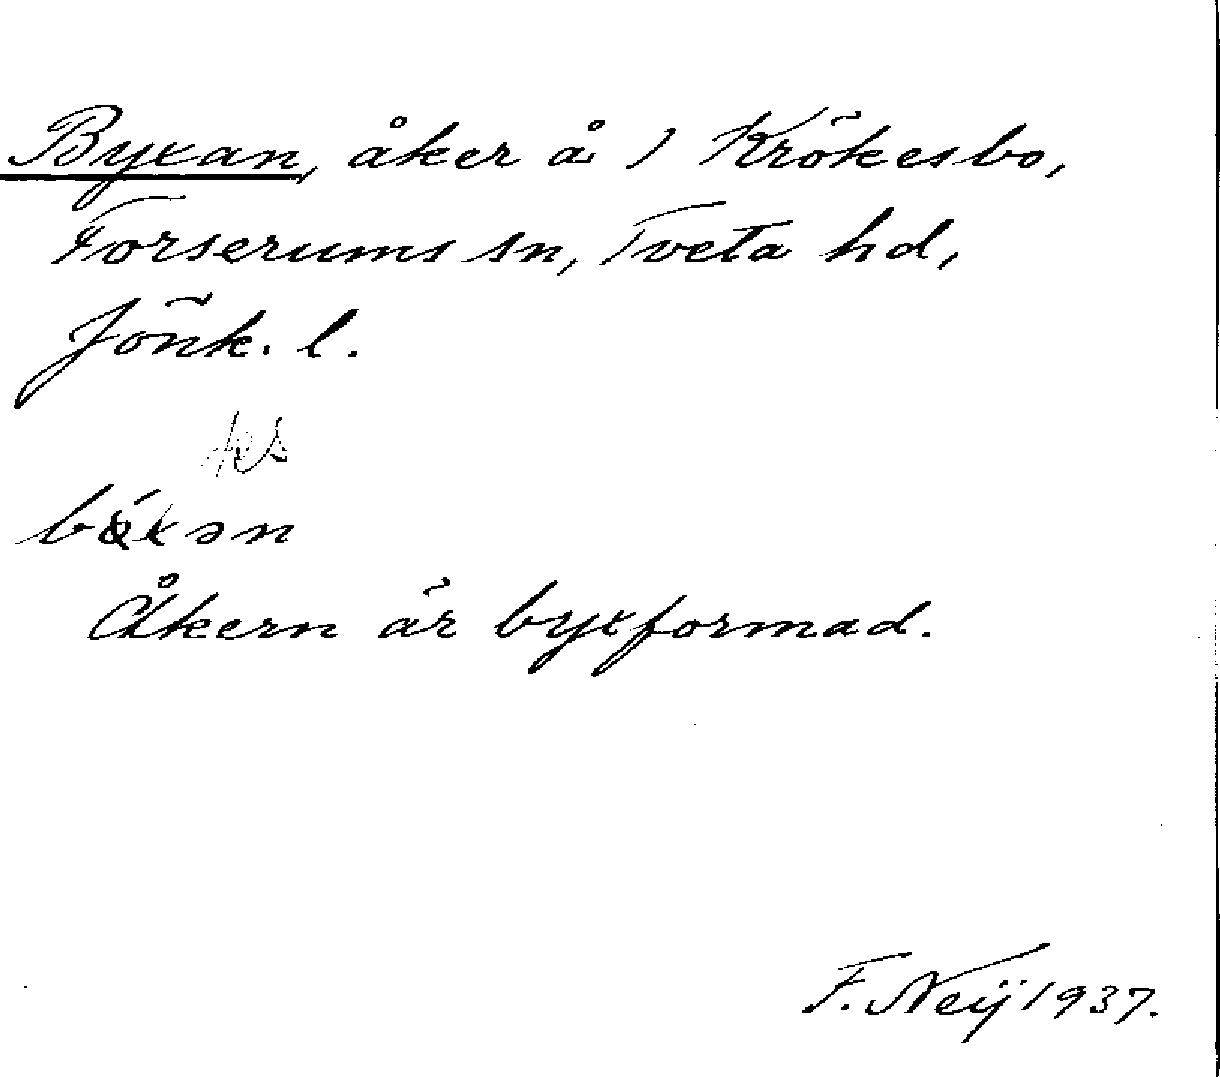 Byxan, åker å 1 Krökesbo,
Forserums sn, Tveta hd,
Jönk. l.
Åkern är byxformad.
F. Neij 1937.